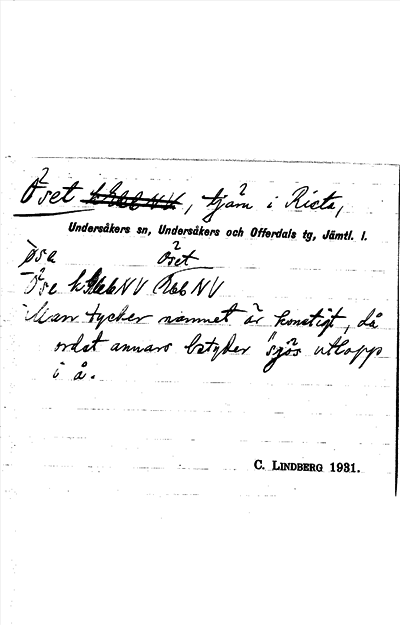 Öset, tjärn i Ricta,
Undersåkers sn, Undersåkers och Offerdals tg, Jämtl. l.
øsa Öset
Öse NV NV
Man tycker namnet är konstigt, då
ordet annars betyder "sjös utlopp
i å.
C. LINDBERG 1931.